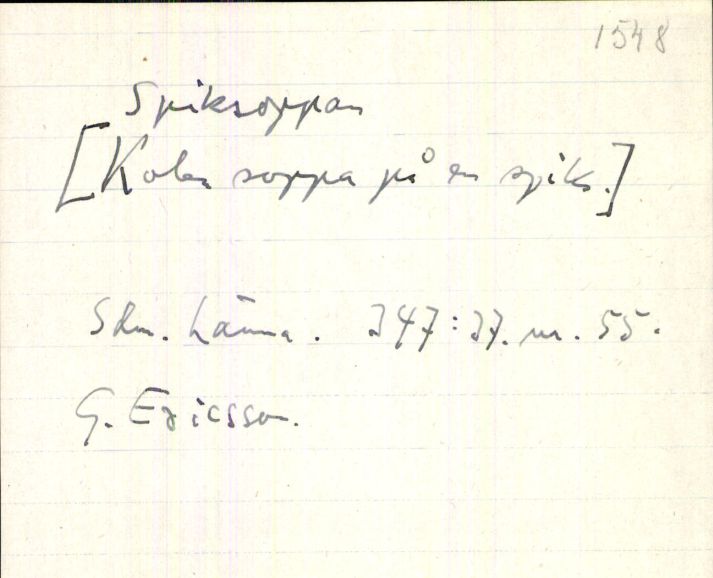 1548
Spiksoppan
[Koka soppa på en spik.]
Skm. Länna. 347:37. nr. 55.
G. Ericsson.